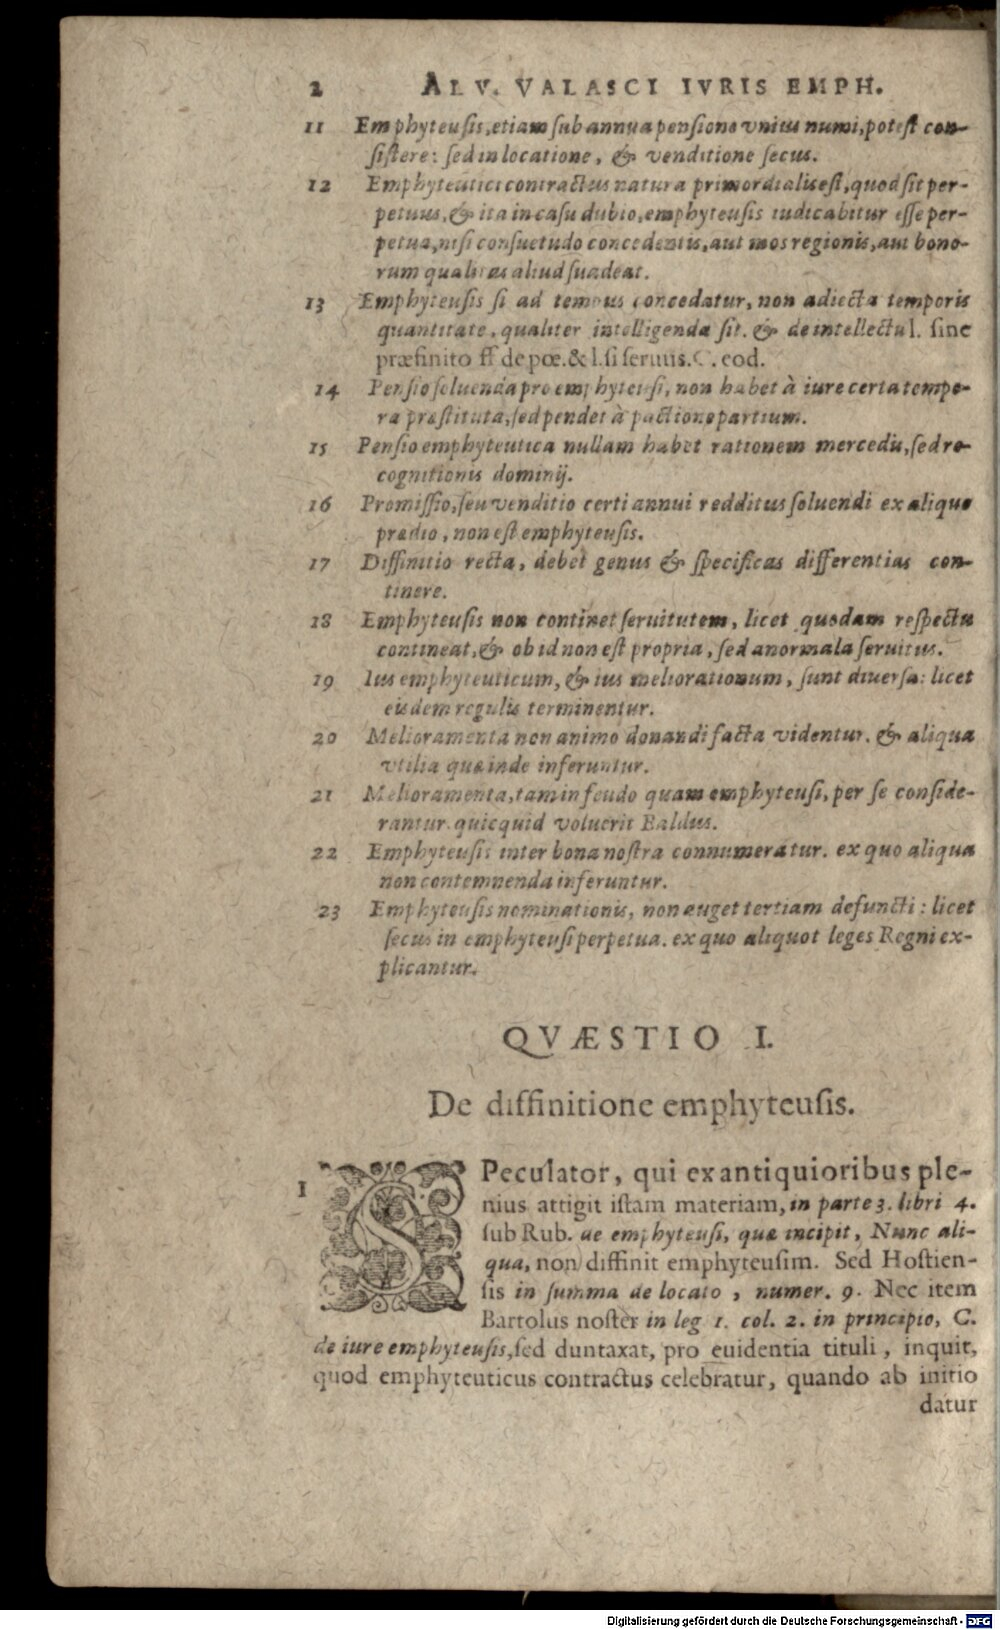 2 ALV. VALASCI IVRIS EMPH.
11 Emphyteusis, etiam sub annua pensione vnius numi, potest con-
sistere: sed in locatione, & venditione secus.
12 Emphyteutici contractus natura primordialis est, quod sit per-
petuus, & ita in casu dubio, emphyteusis iudicabitur esse per-
petua, nisi consuetudo concedentis, aut mos regionis, aut bono-
rum qualitas aliud suadeat.
13 Emphyteusis si ad tempus concedatur, non adiecta temporis
quantitate, qualiter intelligenda sit. & de intellectu l. sine
præfinito ff de pœ. & l. si seruus. C. eod.
14 Pensio soluenda pro emphyteusi, non habet à iure certa tempo-
ra præstituta, sed pendet à pactione partium.
15 Pensio emphyteutica nullam habet rationem mercedis, sed re-
cognitionis dominij.
16 Promissio, seu venditio certi annui redditus soluendi ex aliquo
prædio, non est emphyteusis.
17 Diffinitio recta, debet genus & specificas differentias con-
tinere.
18 Emphyteusis non continet seruitutem, licet quodam respectu
contineat, & ob id non est propria, sed anormala seruitus.
19 Ius emphyteuticum, & ius meliorationum, sunt diuersa: licet
eisdem regulis terminentur.
20 Melioramenta non animo donandi facta videntur. & aliqua
vtilia quæ inde inferuntur.
21 Melioramenta, tam in feudo quam emphyteusi, per se conside-
rantur. quicquid voluerit Baldus.
22 Emphyteusis inter bona nostra connumeratur. ex quo aliqua
non contemnenda inferuntur.
23 Emphyteusis nominationis, non auget tertiam defuncti: licet
secus in emphyteusi perpetua. ex quo aliquot leges Regni ex-
plicantur.
QVÆSTIO I.
De diffinitione emphyteusis.
1 SPeculator, qui ex antiquioribus ple-
nius attigit istam materiam, in parte 3. libri 4.
sub Rub. de emphyteusi, quæ incipit, Nunc ali-
qua, non diffinit emphyteusim. Sed Hostien-
sis in summa de locato, numer. 9. Nec item
Bartolus noster in leg 1. col. 2. in principio, C.
de iure emphyteusis, sed duntaxat, pro euidentia tituli, inquit,
quod emphyteuticus contractus celebratur, quando ab initio
datur
Digitalisierung gefördert durch die Deutsche Forschungsgemeinschaft - DFG